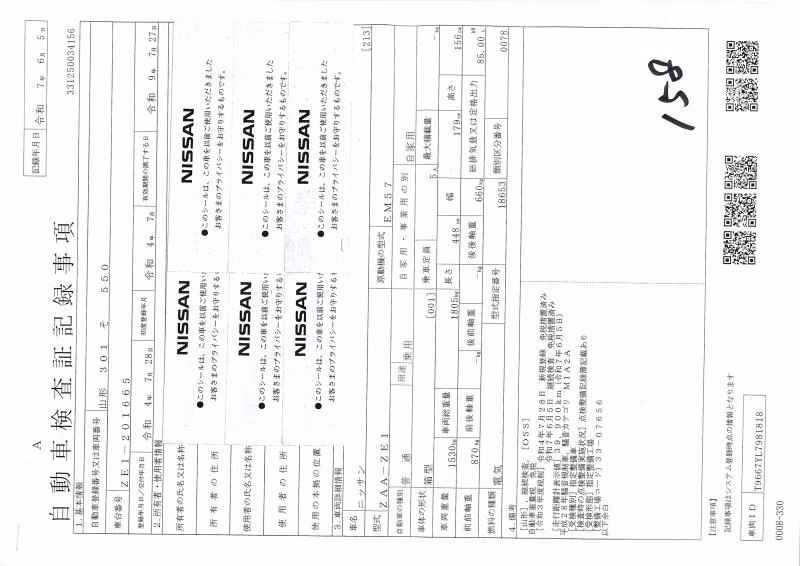 A
自動車検査証記録事項
記録年月日 令和 7年 6月 5日
331250034156
1.基本情報
自動車登録番号又は車両番号 山形 301 そ 550
車台番号 ZE1-201665
登録年月日/交付年月日 令和 4年 7月 28日 初度登録年月 令和 4年 7月 有効期間の満了する日 令和 9年 7月 27日
2.所有者・使用者情報
所有者の氏名又は名称
所有者の住所
使用者の氏名又は名称
使用者の住所
使用の本拠の位置
NISSAN
●このシールは、この車を以前ご使用いただきました
お客さまのプライバシーをお守りするものです。
NISSAN
●このシールは、この車を以前ご使用いただきました
お客さまのプライバシーをお守りするものです。
NISSAN
●このシールは、この車を以前ご使用いただきました
お客さまのプライバシーをお守りするものです。
NISSAN
●このシールは、この車を以前ご使用い
お客さまのプライバシーをお守りする
NISSAN
●このシールは、この車を以前ご使用い
お客さまのプライバシーをお守りする
NISSAN
●このシールは、この車を以前ご使用い
お客さまのプライバシーをお守りする
3.車両詳細情報
車名 ニッサン [213]
型式 ZAA-ZE1 原動機の型式 EM57
自動車の種別 普通 用途 乗用 自家用・事業用の別 自家用
車体の形状 箱型 [001] 乗車定員 5人 最大積載量 -kg
車両重量 1530kg 車両総重量 1805kg 長さ 448cm 幅 179cm 高さ 156cm
前前軸重 870kg 前後軸重 -kg 後前軸重 -kg 後後軸重 660kg 総排気量又は定格出力 85.00 L
燃料の種類 電気 型式指定番号 18653 類別区分番号 0078
4.備考
[山形] 継続検査、[OSS]
自動車重量税 免税
[令和3年度税制] 令和4年7月28日 新規登録 免税措置済み
令和7年6月5日 継続検査 免税措置済み
[走行距離計表示値] 39,900km (令和7年6月5日)
平成28年騒音規制車、騒音カテゴリ M1A2A
[受検種別] 指定整備車
[検査時の点検整備実施状況] 点検整備記録簿記載あり
[受検形態] 指定整備工場
[整備工場コード] 33-07656
以下余白
158
【注意事項】
記録事項はシステム登録時点の情報となります
車両ID T9667YL7981818
0008-330